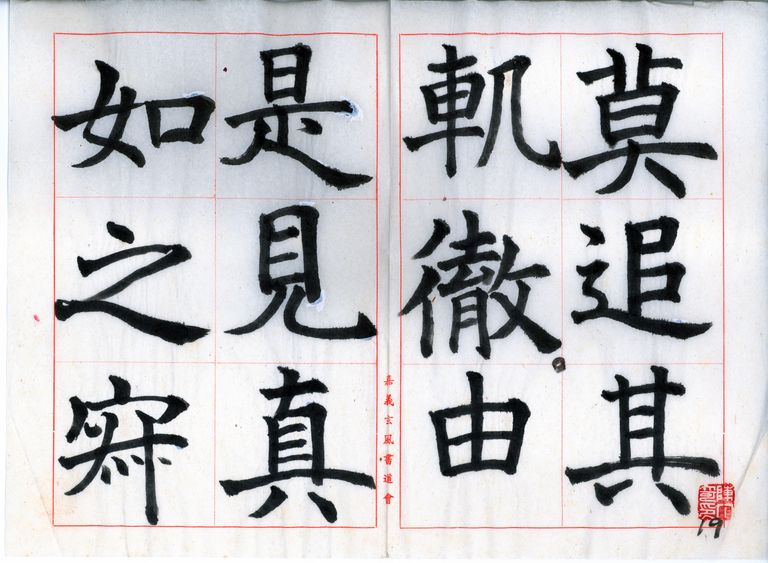 莫追其
軌徹由
是見真
如之
嘉義玄風書道會
19